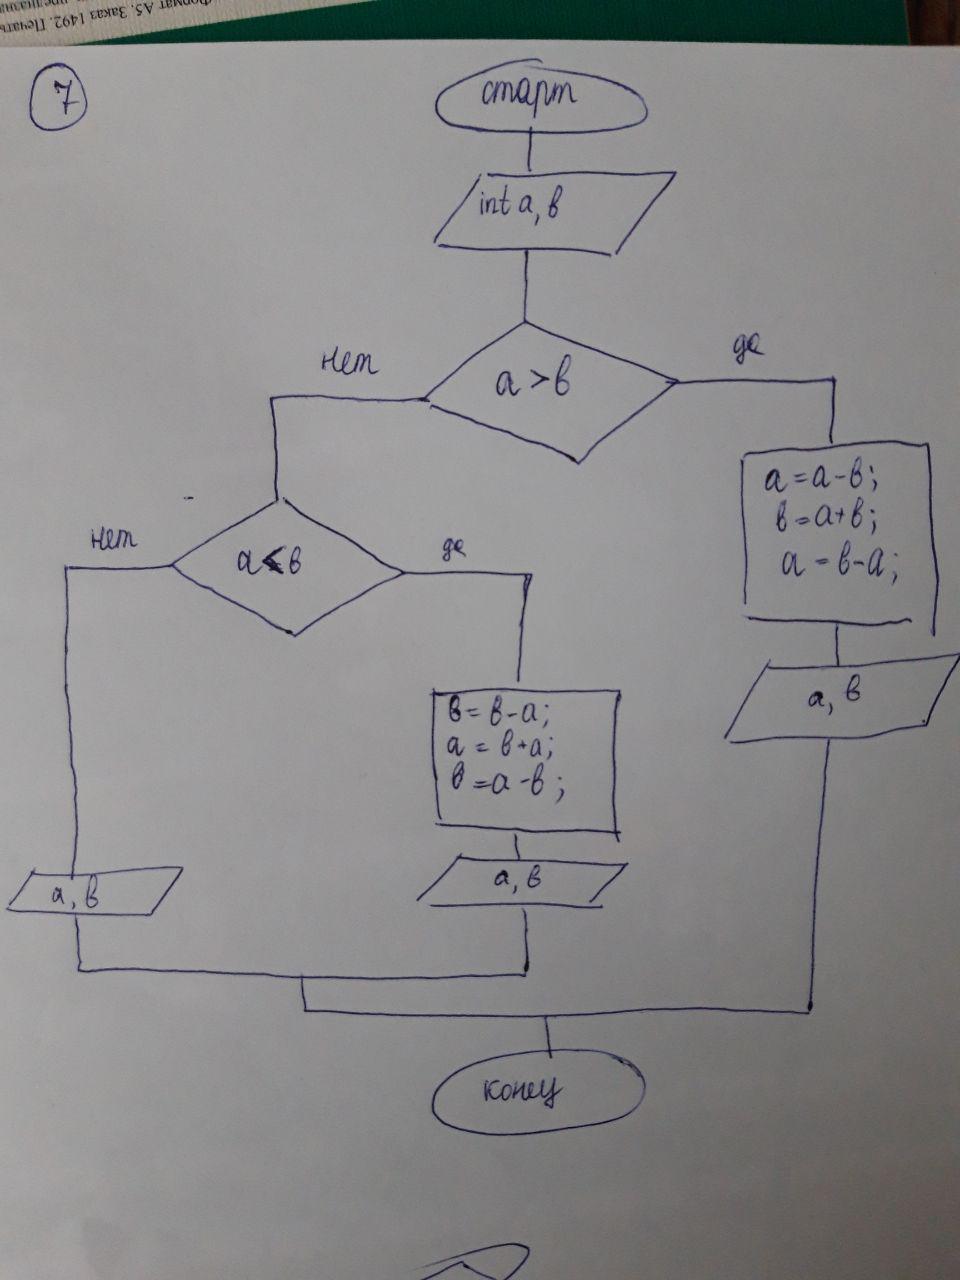 Формат А5. Заказ 1492. Печать
7
старт
int a, в
a > в
нет
да
a = a - в;
в = a + в;
a = в - a;
a < в
нет
да
в = в - a;
a = в + a;
в = a - в;
a, в
a, в
a, в
конец